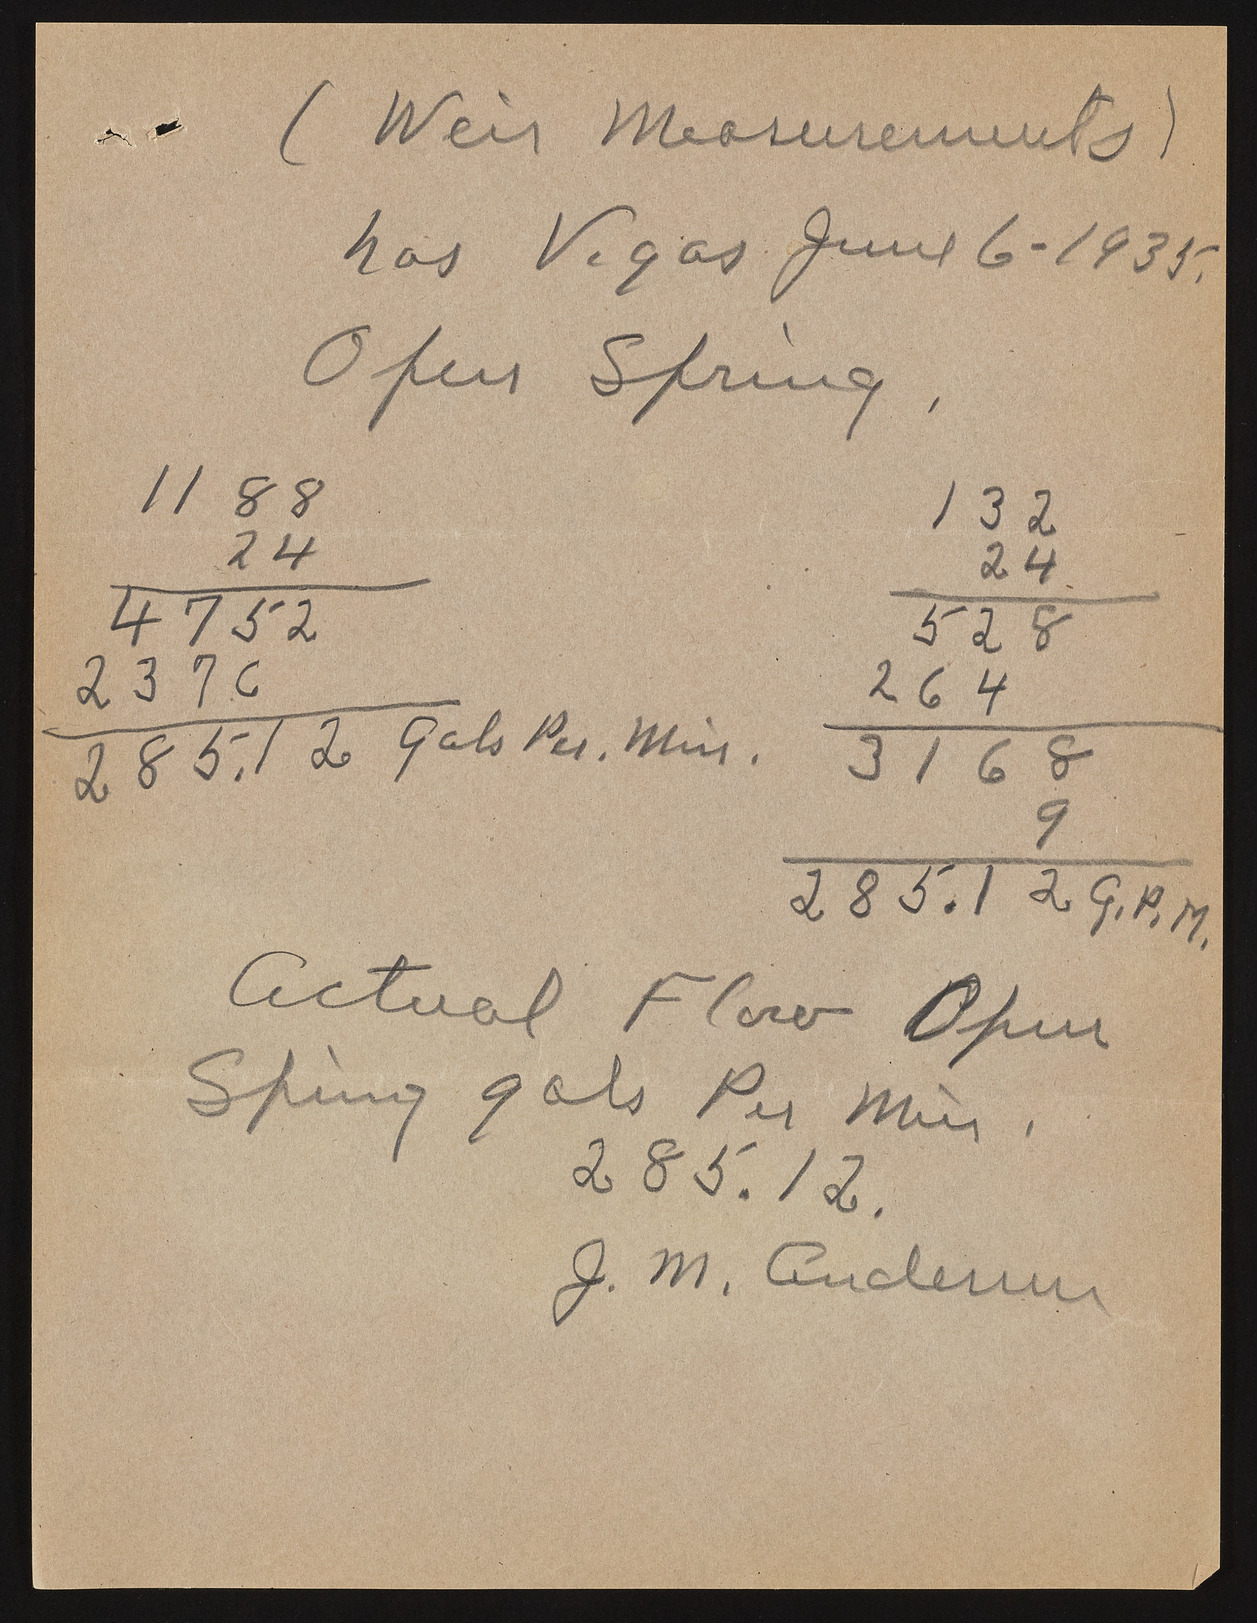 ( Weir Measurements )
Las Vegas June 6-1935.
Open Spring,
1188
24
4752
2376
285.12 gals Per. Min.
132
24
528
264
3168
9
285.12 G.P.M.
Actual Flow Open
Sping gals Per Min.
285.12.
J. M. Anderson